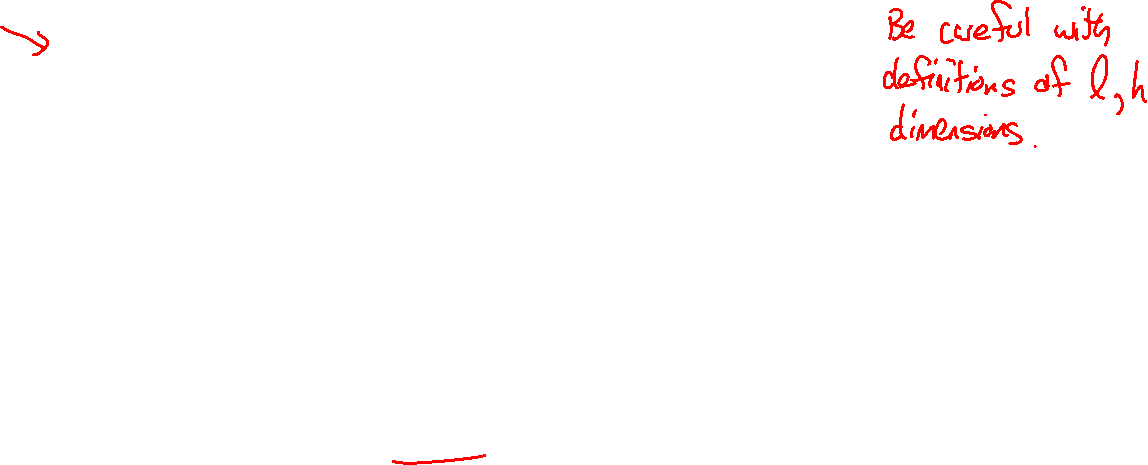 Be careful with
definitions of l, h
dimensions.